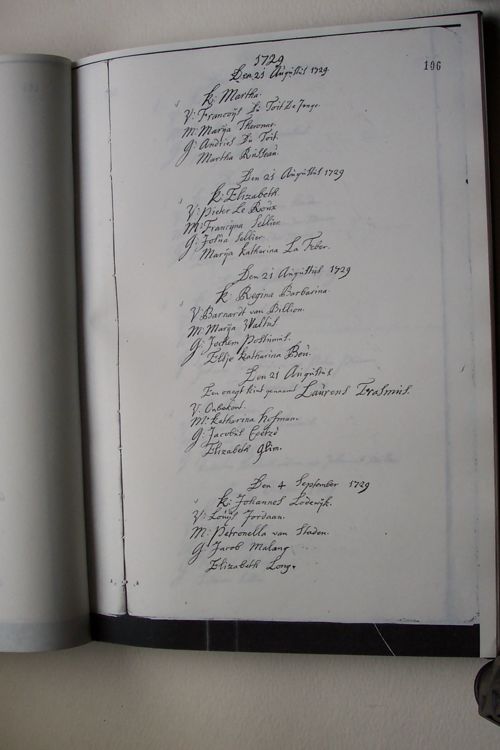 1729
196
Den 21 Augustus 1729
K: Martha.
V: Francoijs Du Toit De Jonge.
M: Marija Theronne.
G: Andries Du Toit.
Martha Russeau.
Den 21 Augustus 1729
K: Elizabeth
V: Pieter Le Roux
M: Francijna Sellier
G: Josua Sellier
Marija Katharina La Feber.
Den 21 Augustus 1729
K: Regina Barbarina.
V: Barnardt van Billion.
M: Marija Waltus.
G: Jochem Posthumus.
Eltje Katharina Bou.
Den 21 Augustus
Een onegt kint genaamt Laurens Erasmus.
V: Onbekent.
M: Katharina Hofman.
G: Jacobus Coetzé
Elizabeth Glim.
Den 4 September 1729
K: Johannes Lodewijk.
V: Louijs Jordaan.
M: Petronella van Staden.
G: Jacob Malang
Elizabeth Long.